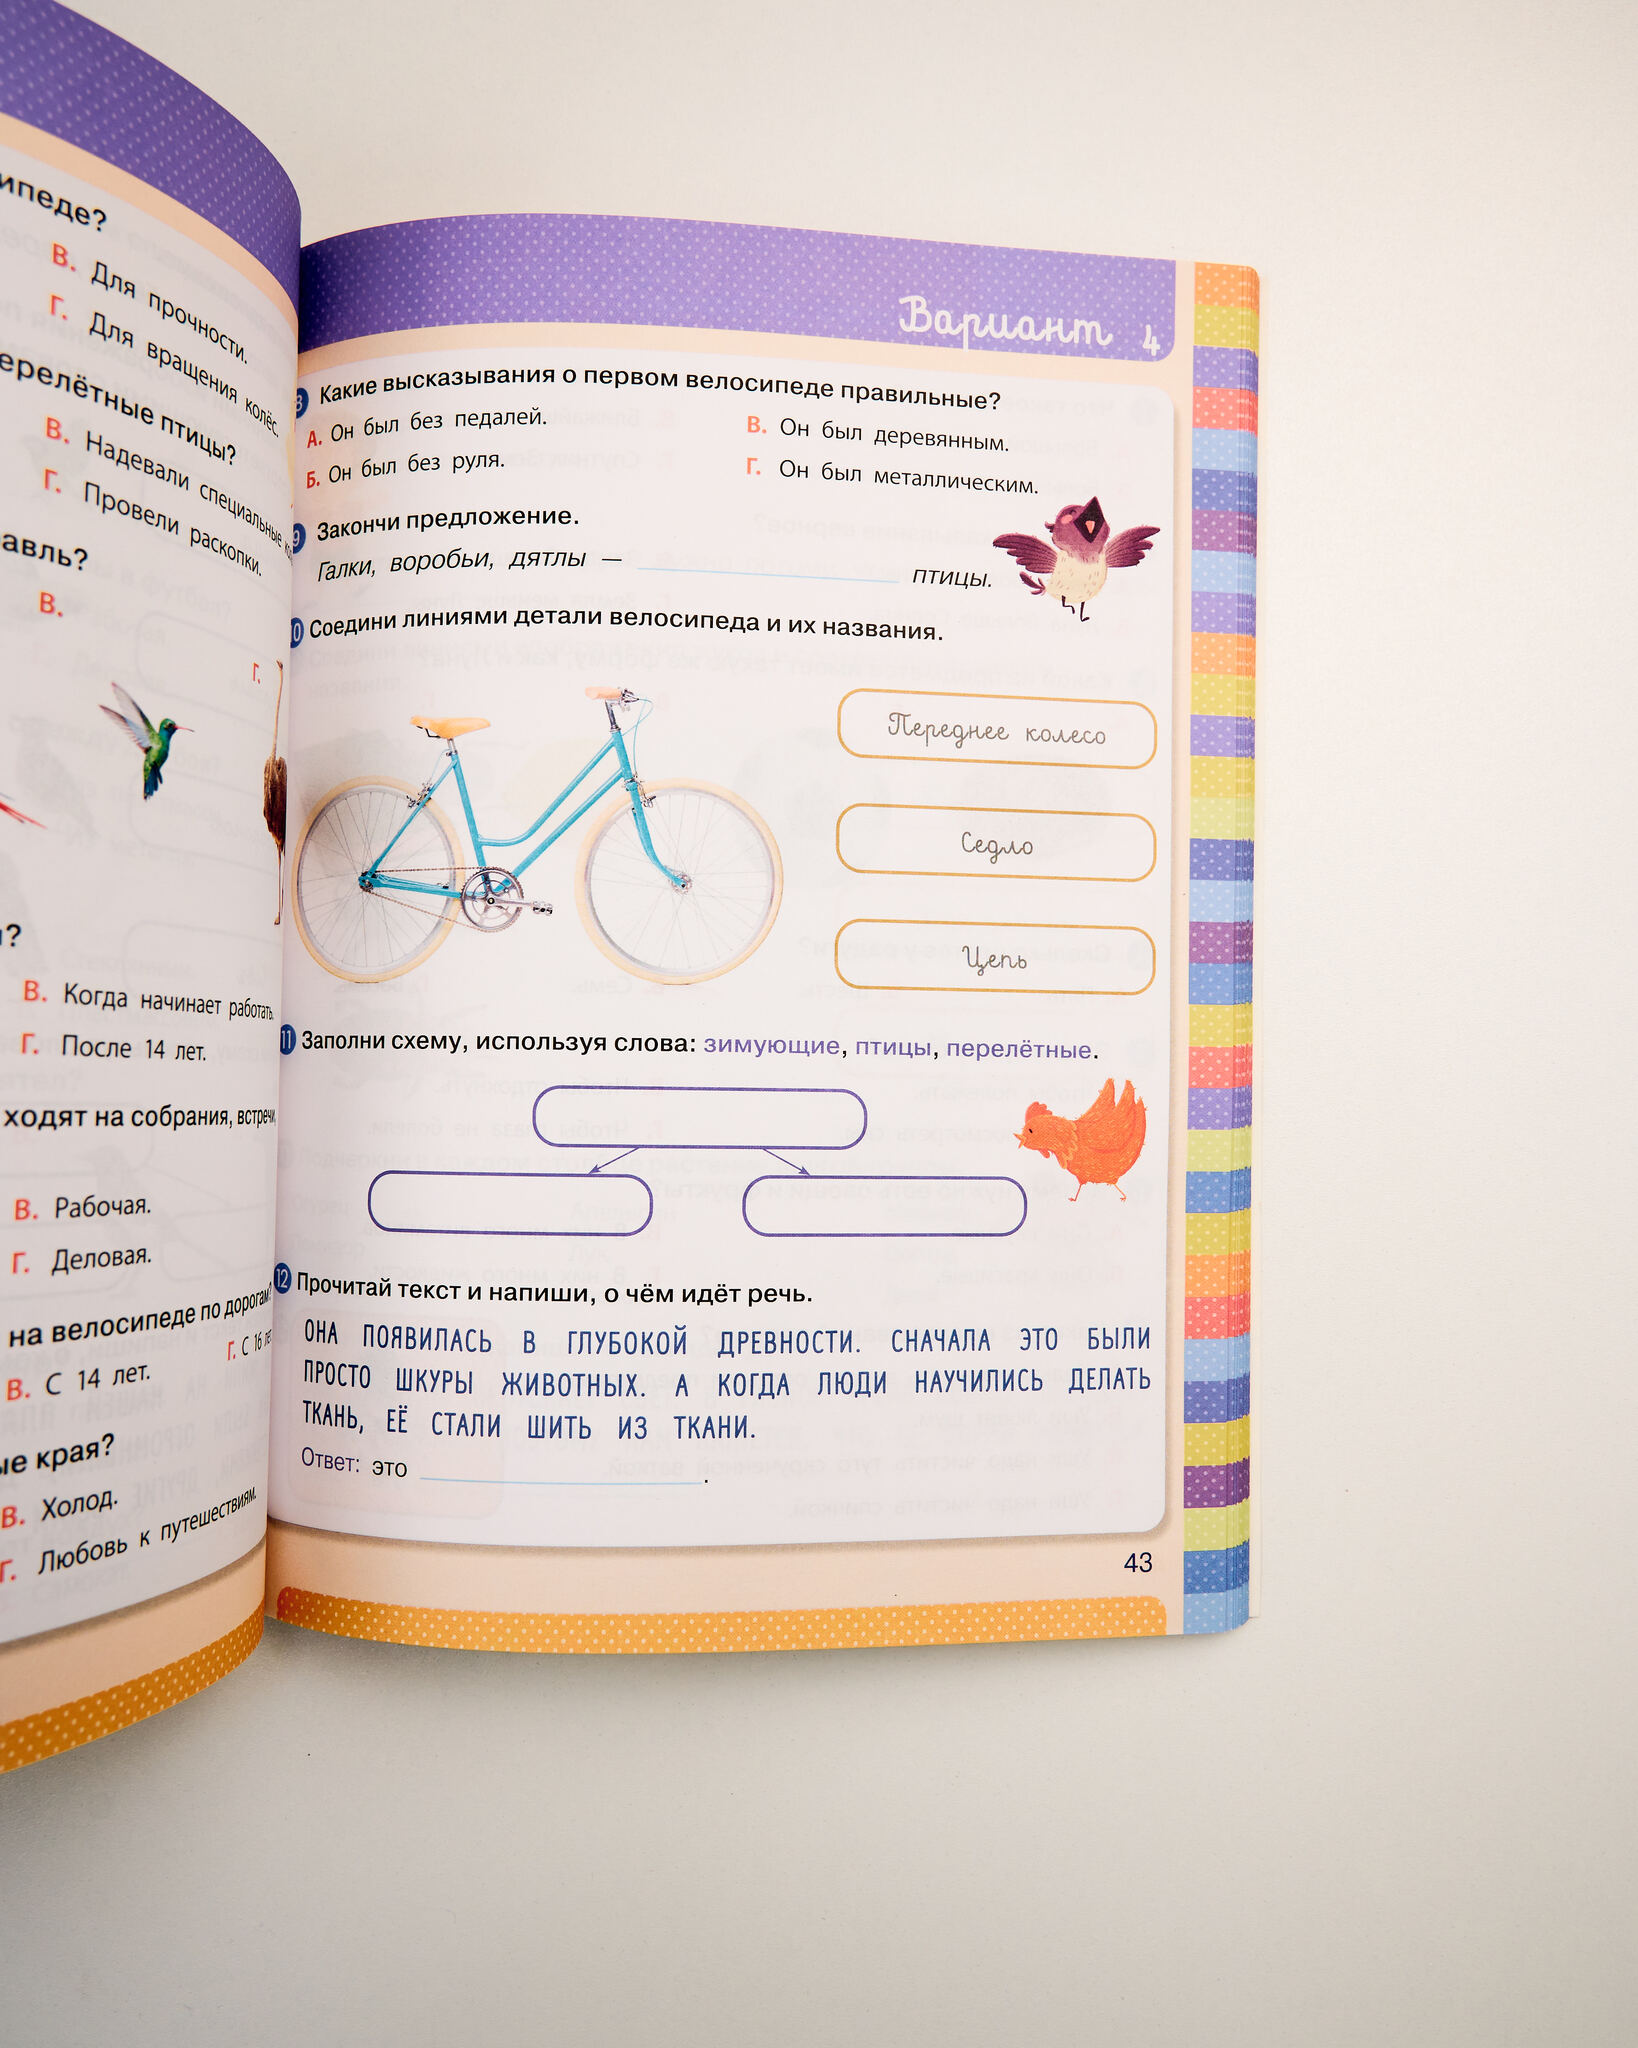 ипеде?
В. Для прочности.
Г. Для вращения колёс.
ерелётные птицы?
В. Надевали специальные
Г. Провели раскопки.
авль?
В.
Г.
?
В. Когда начинает работать.
Г. После 14 лет.
ходят на собрания, встречи,
В. Рабочая.
Г. Деловая.
на велосипеде по дорогам?
В. С 14 лет.
Г. С 16 лет
ые края?
В. Холод.
Г. Любовь к путешествиям.
Вариант 4
8 Какие высказывания о первом велосипеде правильные?
А. Он был без педалей.
Б. Он был без руля.
В. Он был деревянным.
Г. Он был металлическим.
9 Закончи предложение.
Галки, воробьи, дятлы — ____ птицы.
10 Соедини линиями детали велосипеда и их названия.
Переднее колесо
Седло
Цепь
11 Заполни схему, используя слова: зимующие, птицы, перелётные.
12 Прочитай текст и напиши, о чём идёт речь.
ОНА ПОЯВИЛАСЬ В ГЛУБОКОЙ ДРЕВНОСТИ. СНАЧАЛА ЭТО БЫЛИ
ПРОСТО ШКУРЫ ЖИВОТНЫХ. А КОГДА ЛЮДИ НАУЧИЛИСЬ ДЕЛАТЬ
ТКАНЬ, ЕЁ СТАЛИ ШИТЬ ИЗ ТКАНИ.
Ответ: это ____.
43